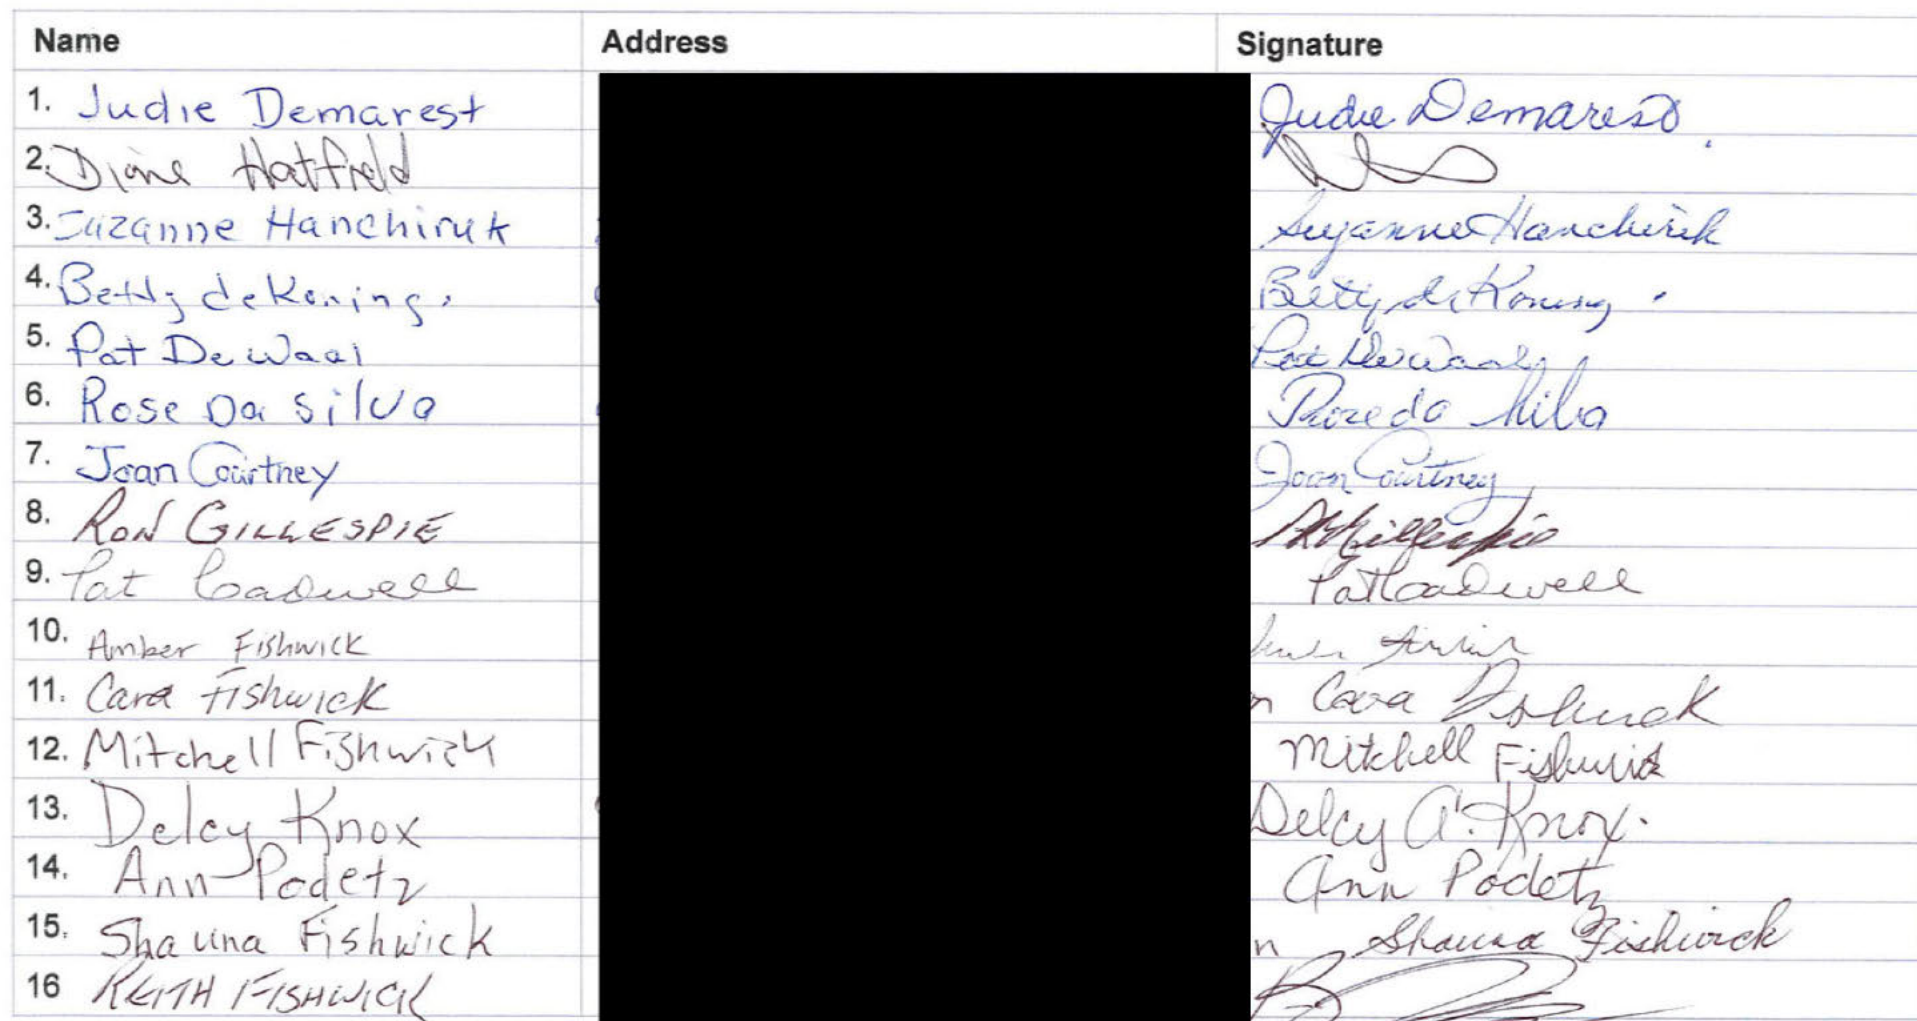 Name Address Signature
1. Judie Demarest Judie Demarest
2. Diane Hatfield
3. Suzanne Hanchiruk Suzanne Hanchiruk
4. Betty deKoning. Betty deKoning.
5. Pat DeWaal Pat DeWaal
6. Rose Da Silva Rose da Silva
7. Joan Courtney Joan Courtney
8. RON GILLESPIE R Gillespie
9. Pat Cadwell Pat Cadwell
10. Amber Fishwick
11. Cara Fishwick n Cara Fishwick
12. Mitchell Fishwick Mitchell Fishwick
13. Delcy Knox Delcy A. Knox.
14. Ann Podetz Ann Podetz
15. Shauna Fishwick n Shauna Fishwick
16 KEITH FISHWICK